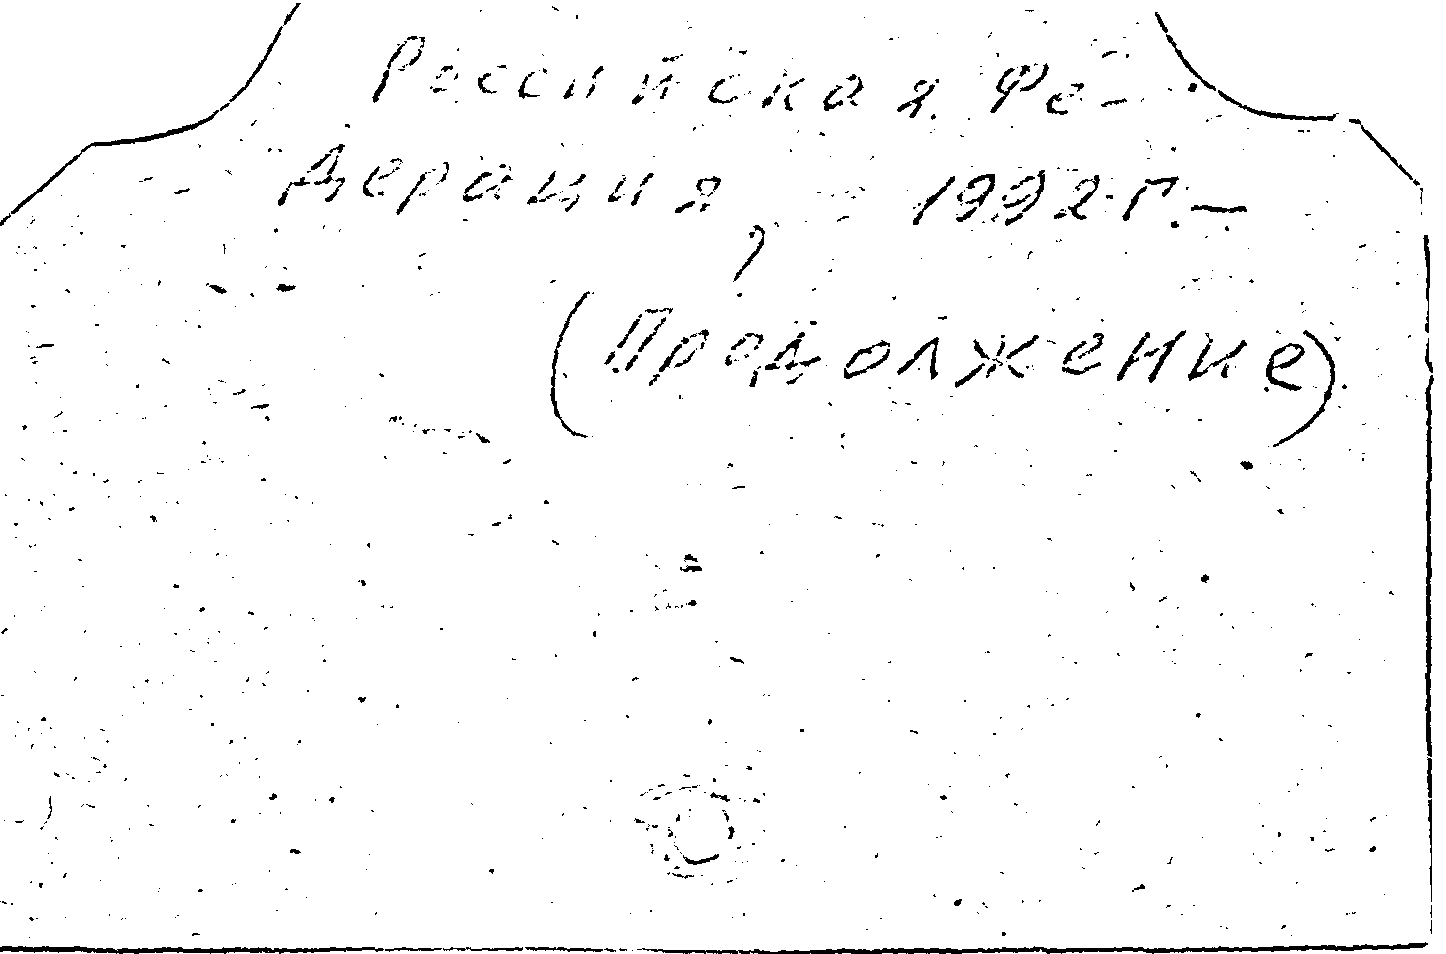 Российская Фе-
дерация, 1992 г. —
(Продолжение)